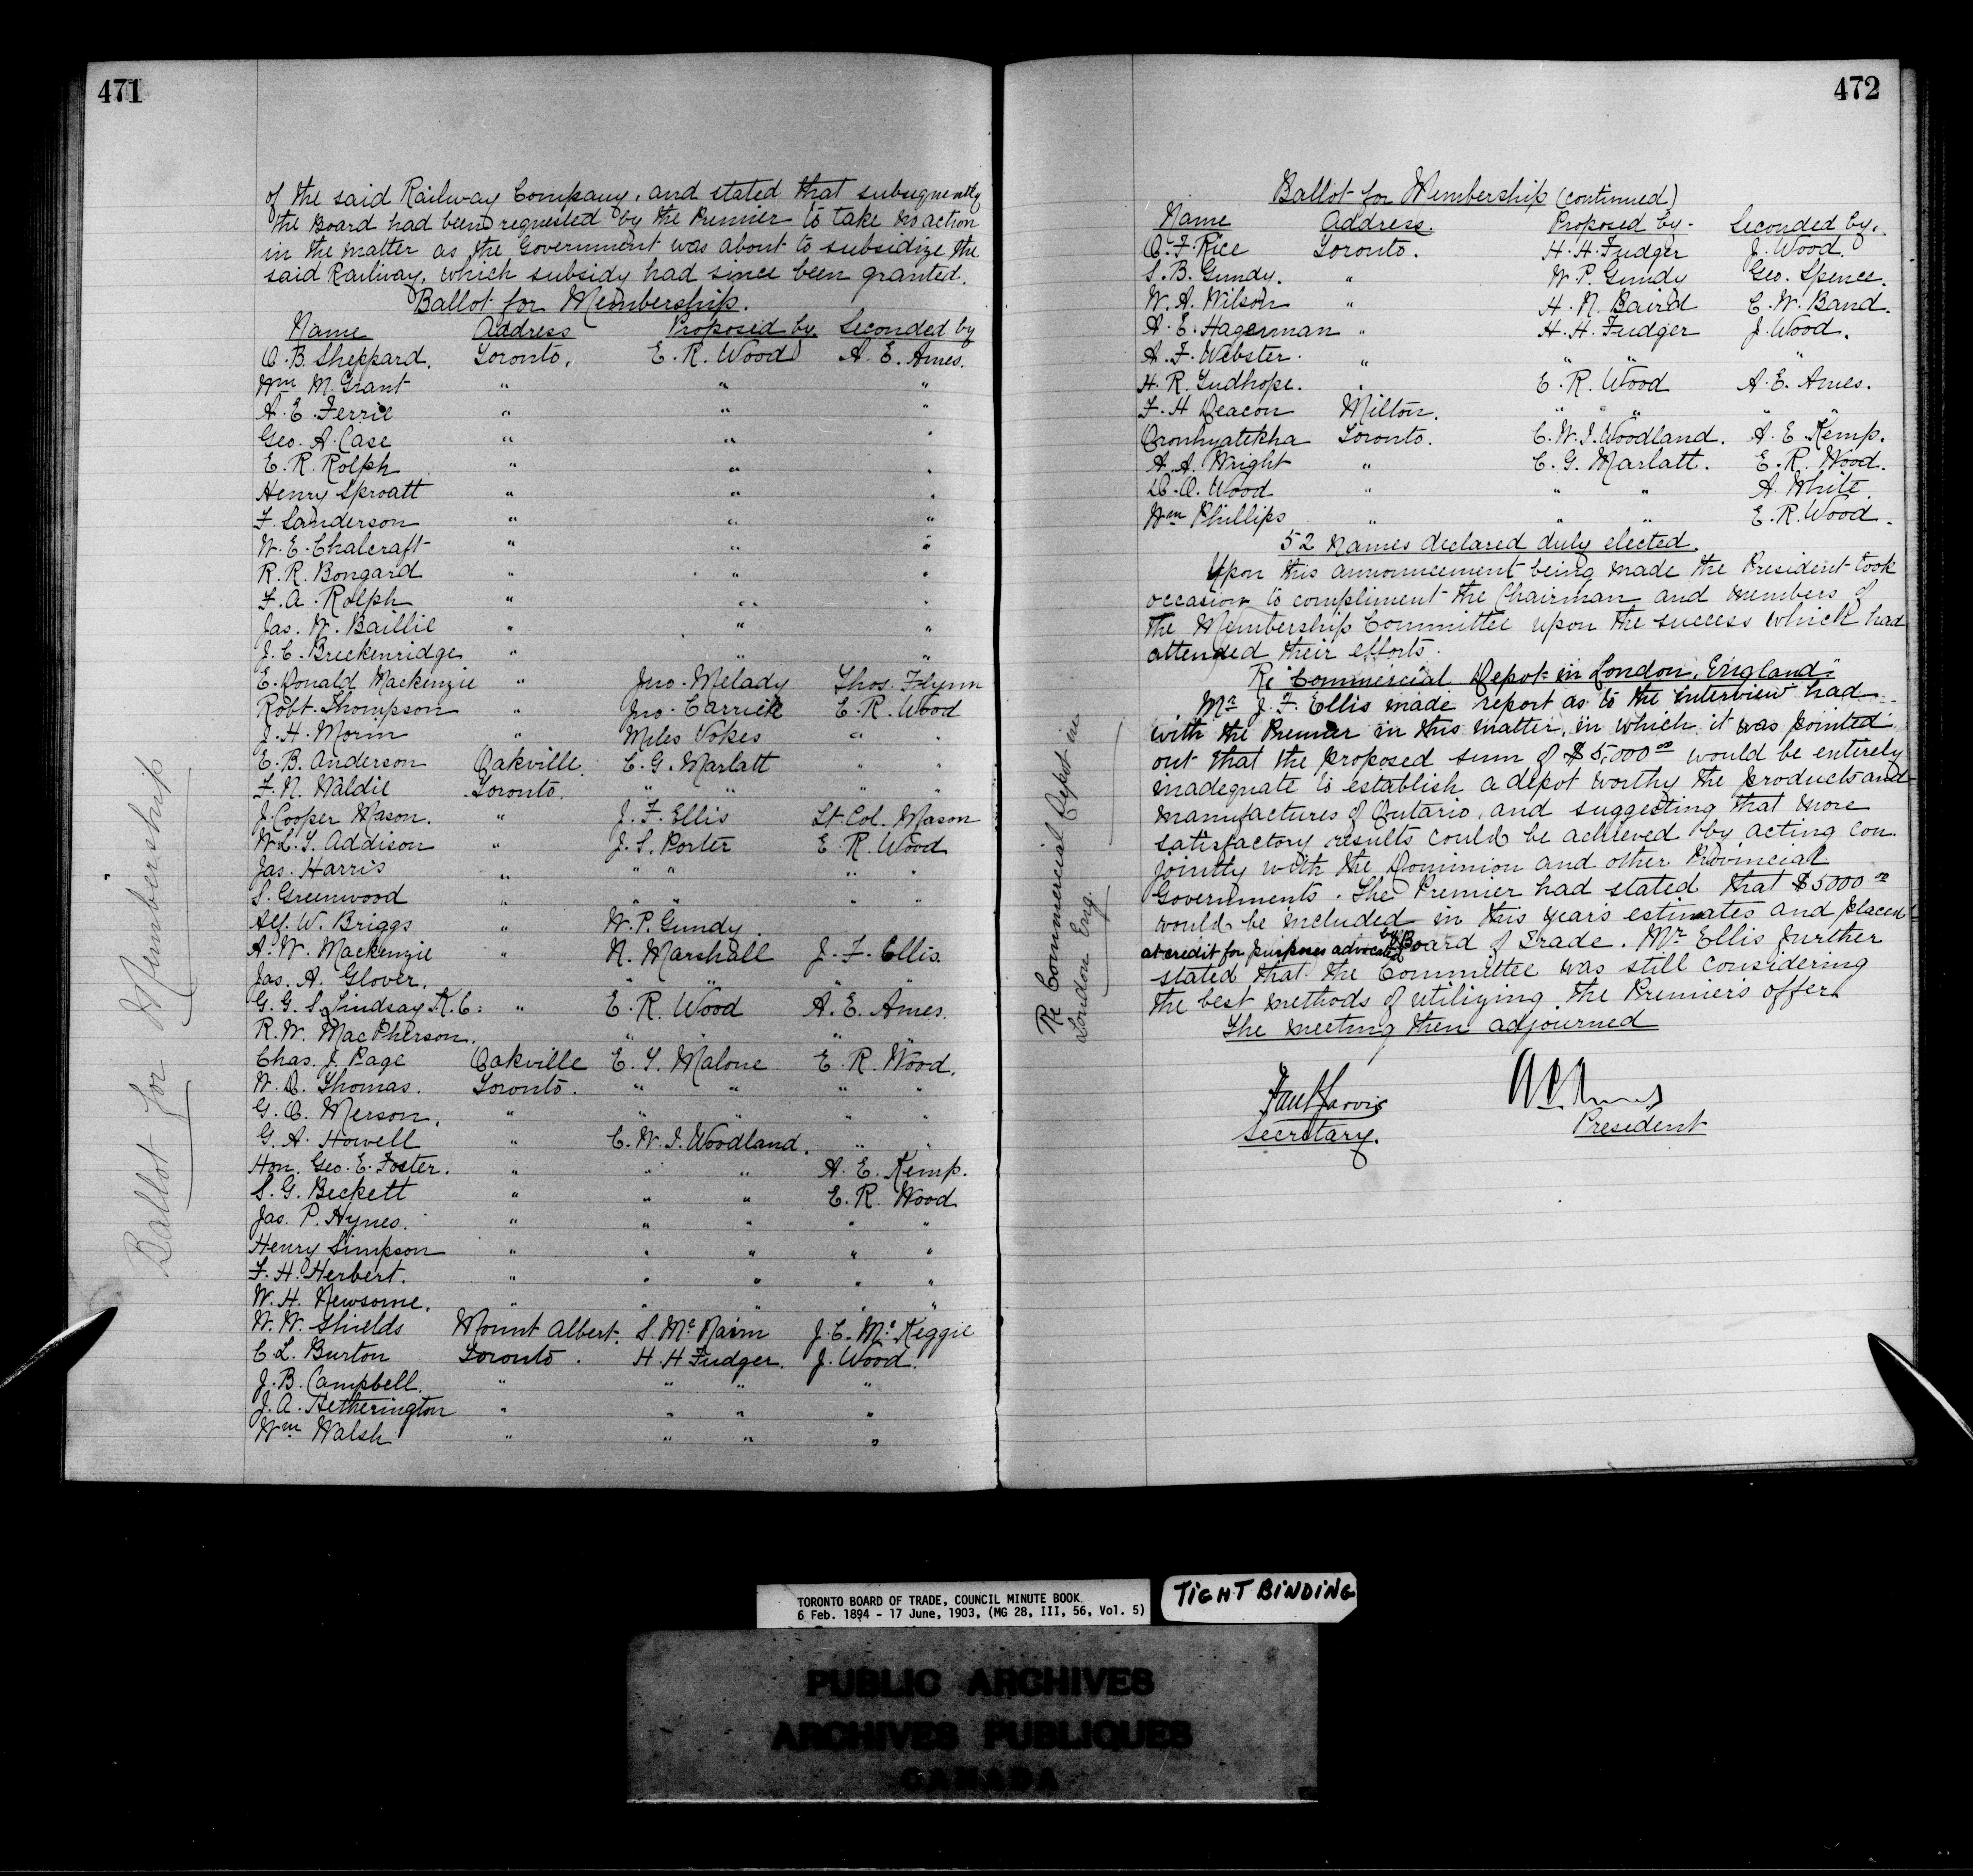 471
of the said Railway Company, and stated that subsequently
the Board had been requested by the Premier to take no action
in the matter as the Government was about to subsidize the
said Railway, which subsidy had since been granted.
Ballot for Membership.
Name Address Proposed by Seconded by
O. B. Sheppard. Toronto. E. R. Wood A. E. Ames.
Wm M. Grant " " "
A. E. Ferrie " " "
Geo. A. Case " " "
E. R. Rolph " " "
Henry Sproatt " " "
F. Sanderson " " "
W. E. Chalcraft " " "
R. R. Bongard " " "
F. A. Rolph " " "
Jas. W. Baillie " " "
J. C. Breckenridge " " "
E. Donald Mackenzie " Jno. Melady Thos. Flynn
Robt. Thompson " Jno. Carrick E. R. Wood
J. H. Morin " Miles Vokes " "
E. B. Anderson Oakville. C. G. Marlatt " "
F. N. Waldie Toronto. " " " "
J. Cooper Mason. " J. F. Ellis Lt. Col. Mason
W. L. T. Addison " J. S. Porter E. R. Wood
Jas. Harris " " " " "
S. Greenwood " " " " "
Alf. W. Briggs " W. P. Gundy.
A. W. Mackenzie " N. Marshall J. F. Ellis.
Jas. A. Glover. " " " "
G. G. S. Lindsay K. C. " E. R. Wood A. E. Ames.
R. W. MacPherson. " " " "
Chas. J. Page Oakville E. T. Malone E. R. Wood.
W. D. Thomas. Toronto. " " " "
G. O. Merson. " " " " "
G. A. Howell " C. W. I. Woodland. " "
Hon. Geo. E. Foster. " " " A. E. Kemp.
S. G. Beckett " " " E. R. Wood
Jas. P. Hynes. " " " " "
Henry Simpson " " " " "
F. H. Herbert. " " " " "
W. H. Newsome. " " " " "
W. W. Shields Mount Albert. S. McNairn J. C. McKeggie
C. L. Burton Toronto. H. H. Fudger. J. Wood.
J. B. Campbell. " " " "
J. A. Hetherington " " " "
Wm Walsh " " " "
Ballot for Membership
472
Ballot for Membership (continued)
Name Address. Proposed by. Seconded by.
A. F. Rice Toronto. H. H. Fudger J. Wood.
S. B. Gundy. " W. P. Gundy Geo. Spence.
W. A. Wilson " H. N. Baird C. W. Band.
A. E. Hagerman " H. H. Fudger J. Wood.
A. F. Webster. " " " "
H. R. Tudhope. " E. R. Wood A. E. Ames.
F. H Deacon Milton. " " " " "
Oronhyatekha Toronto. C. W. I. Woodland. A. E. Kemp.
A. A. Wright " C. G. Marlatt. E. R. Wood.
D. O. Wood " " " A. White.
Wm Phillips " " " E. R. Wood.
52 names declared duly elected.
Upon this announcement being made the President took
occasion to compliment the Chairman and members of
the Membership Committee upon the success which had
attended their efforts.
Re "Commercial Depot in London, England"
Mr J. F. Ellis made report as to the interview had
with the Premier in this matter, in which it was pointed
out that the proposed sum of $5,000 00 would be entirely
inadequate to establish a depot worthy the products and
manufactures of Ontario, and suggesting that more
satisfactory results could be achieved by acting con
jointly with the Dominion and other Provincial
Governments. The Premier had stated that $5000 00
would be included in this year's estimates and placed
at credit for purposes advocated by Board of Trade. Mr Ellis further
stated that the Committee was still considering
the best methods of utilizing the Premiers offer.
The meeting then adjourned
Paul Jarvis
Secretary. President
Re Commercial Depot in
London Eng.
TORONTO BOARD OF TRADE, COUNCIL MINUTE BOOK
6 Feb. 1894 - 17 June, 1903, (MG 28, III, 56, Vol. 5)
TIGHT BINDING
PUBLIC ARCHIVES
ARCHIVES PUBLIQUES
CANADA